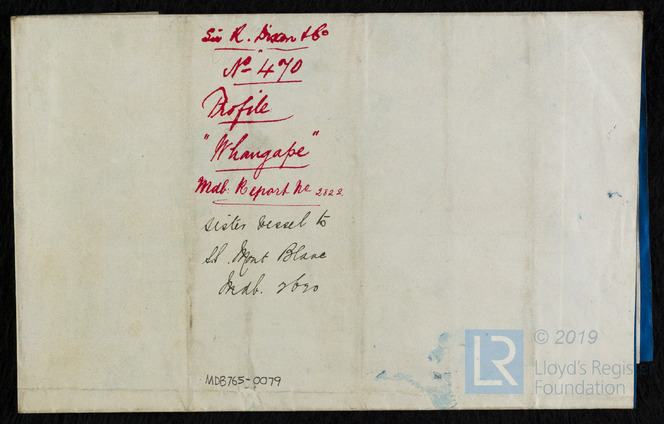 Sir R. Dixon & Co
No 470
Profile
"Whangape"
Mdb. Report No 2822
Sister vessel to
SS. Mont Blanc
Mdb. 2690
MDB765-0079
LR
© 2019
Lloyd's Register
Foundation